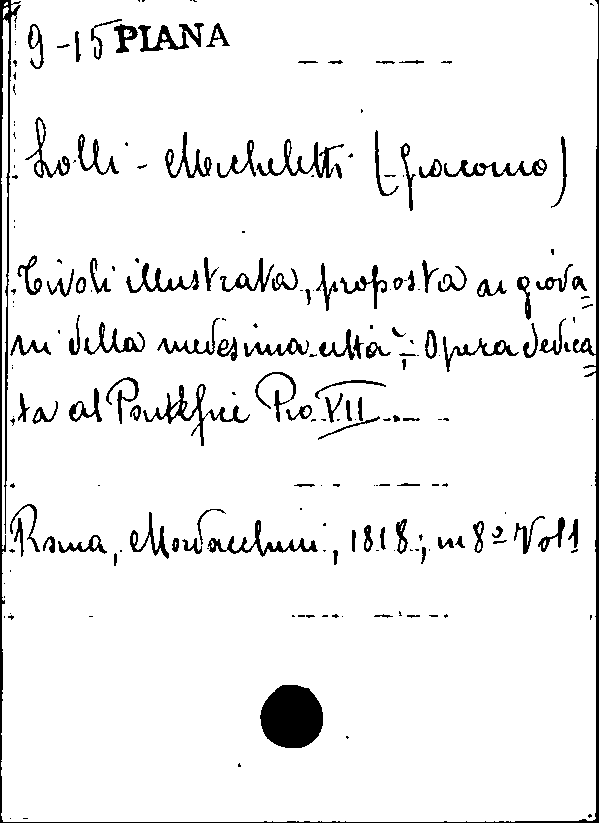 9-15 PIANA
Lolli-Micheletti (Giacomo)
Tivoli illustrata, proposta ai giova=
ni della medesima città; Opera dedica=
ta al Pontefice Pio VII.
Roma, Mordacchini, 1818; in 8º Vol 1